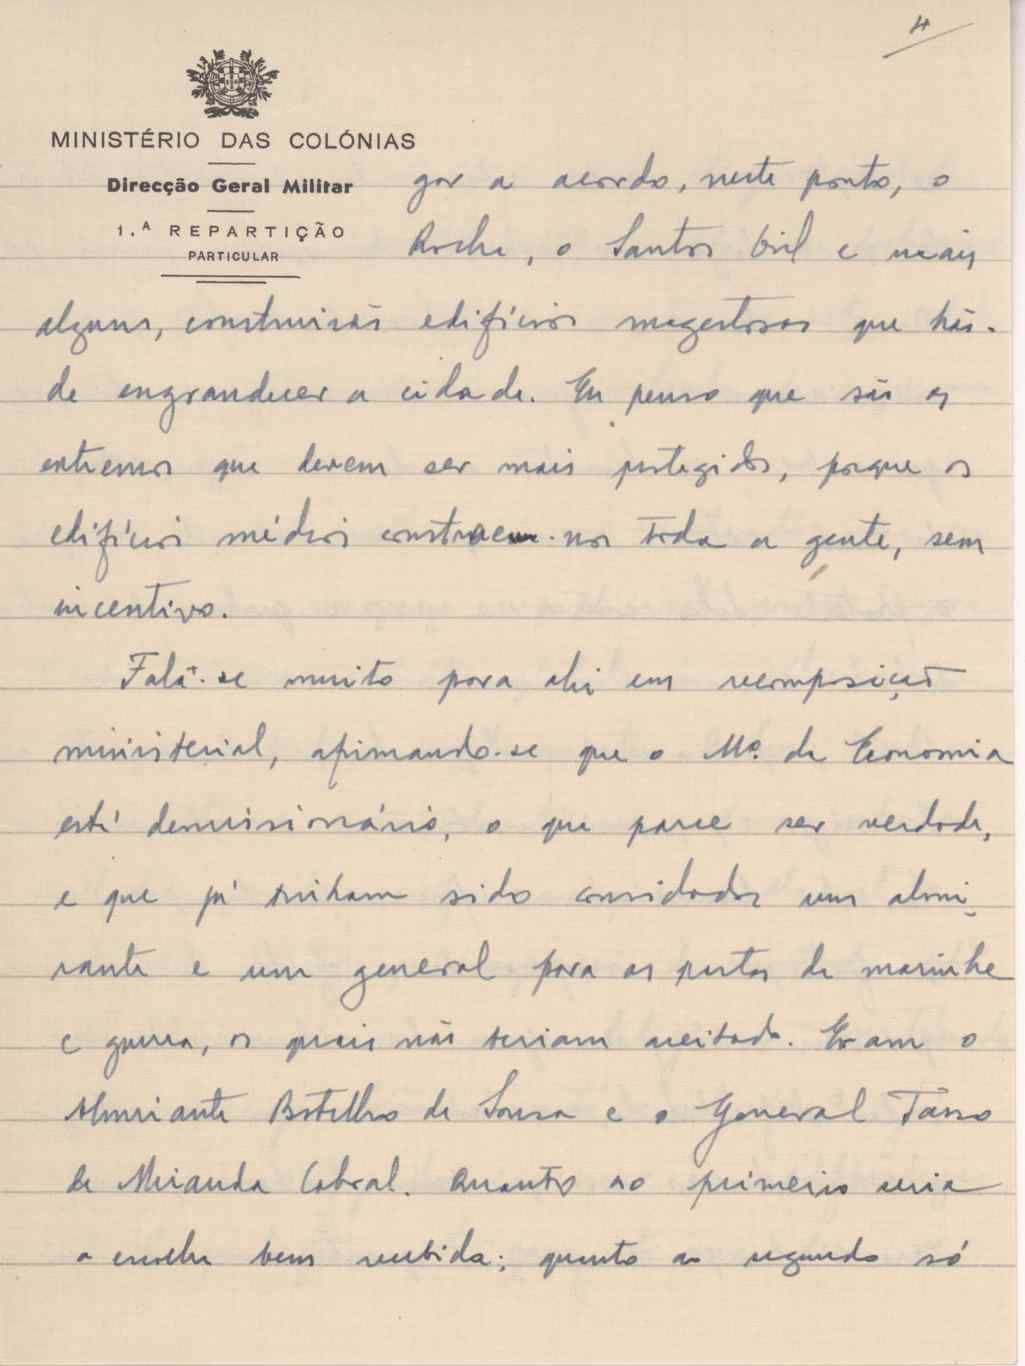 4
MINISTÉRIO DAS COLÓNIAS
Direcção Geral Militar
1.ª REPARTIÇÃO
PARTICULAR
gar a acordo, neste ponto, o
Rocha, o Santos Gil e mais
alguns, construirão edifícios magestosos que hão-
de engrandecer a cidade. Eu penso que são os
extremos que devem ser mais protegidos, porque os
edifícios médios constroem-nos toda a gente, sem
incentivo.
Fala-se muito para ahi em recomposição
ministerial, afirmando-se que o Mº. da Economia
está demissionário, o que parece ser verdade,
e que já tinham sido convidados um almi-
rante e um general para as pastas da marinha
e guerra, os quais não teriam aceitado. Eram o
Almirante Botelho de Sousa e o General Tasso
de Miranda Cabral. Quanto ao primeiro seria
a escolha bem recebida; quanto ao segundo só